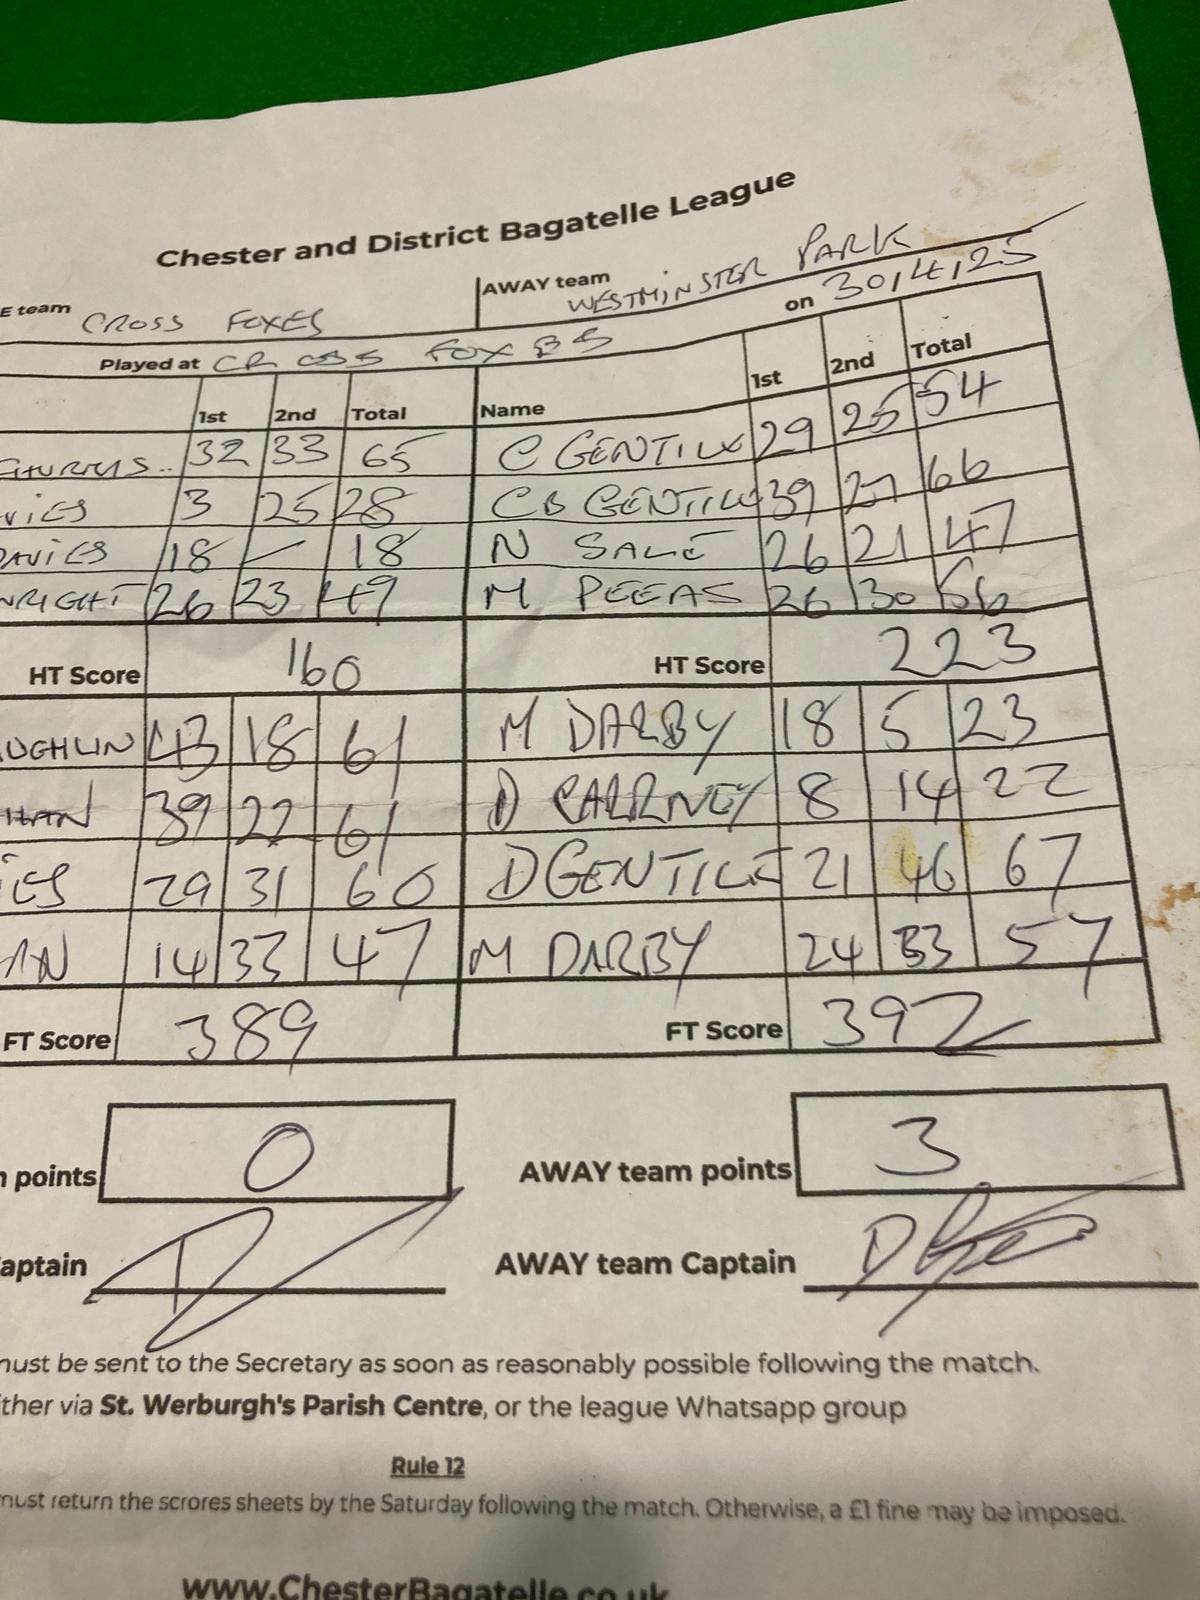 Chester and District Bagatelle League
E team CROSS FOXES AWAY team WESTMINSTER PARK
Played at CROSS FOXES on 30,4,25
1st 2nd Total Name 1st 2nd Total
32 33 65 C GENTILE 29 25 54
VIES 3 25 28 CB GENTILE 39 27 66
DAVIES 18 — 18 N SALE 26 21 47
WRIGHT 26 23 49 M 26 30 56
HT Score 160 HT Score 223
UGHLIN 43 18 61 M DARBY 18 5 23
HAN 39 22 61 D 8 14 22
IES 29 31 60 D GENTILE 21 46 67
AN 14 33 47 M DARBY 24 33 57
FT Score 389 FT Score 392
points 0 AWAY team points 3
aptain AWAY team Captain
must be sent to the Secretary as soon as reasonably possible following the match.
ther via St. Werburgh's Parish Centre, or the league Whatsapp group
Rule 12
must return the scrores sheets by the Saturday following the match. Otherwise, a £1 fine may be imposed.
www.ChesterBagatelle.co.uk